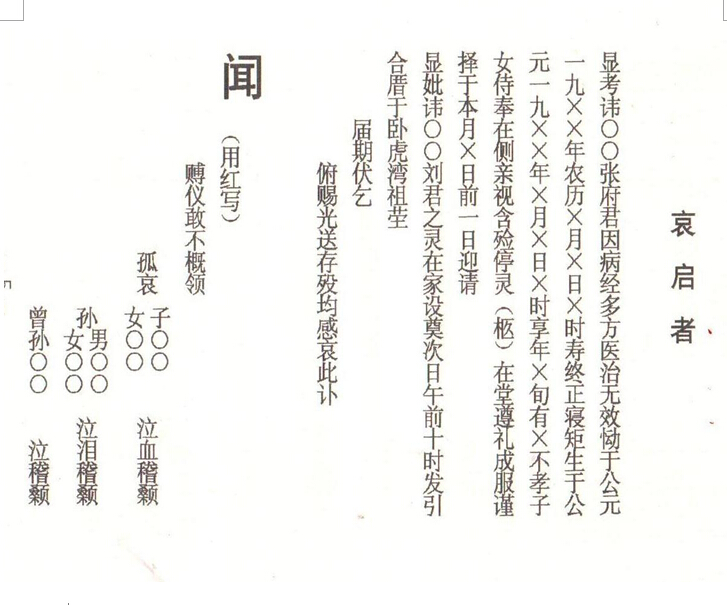 哀启者
显考讳○○张府君因病经多方医治无效恸于公元
一九××年农历×月×日×时寿终正寝矩生于公
元一九××年×月×日×时享年×旬有×不孝子
女侍奉在侧亲视含殓停灵（柩）在堂遵礼成服谨
择于本月×日前一日迎请
显妣讳○○刘君之灵在家设奠次日午前十时发引
合厝于卧虎湾祖茔
届期伏乞
俯赐光送存殁均感哀此讣
闻
（用红写）
赙仪敢不概领
孤哀子○○
女○○ 泣血稽颡
孙男○○
女○○ 泣泪稽颡
曾孙○○ 泣稽颡